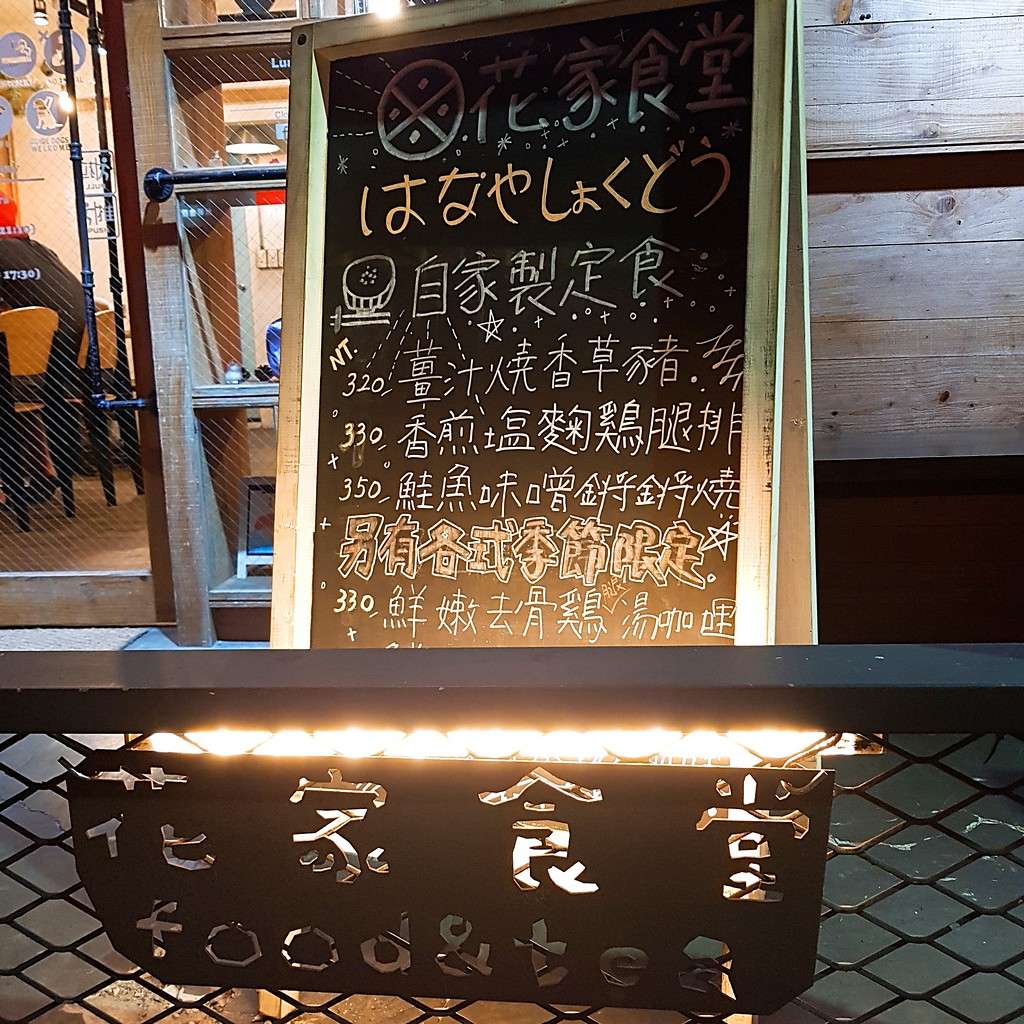 花家食堂
はなやしょくどう
自家製定食
NT.
320 薑汁燒香草豬.
330 香煎塩麴鷄腿排
350 鮭魚味噌鏘鏘燒
另有各式季節限定.
330 鮮嫩去骨鷄湯咖哩
花家食堂
food&tea
17:30)
WELCOME
PULL
PUSH